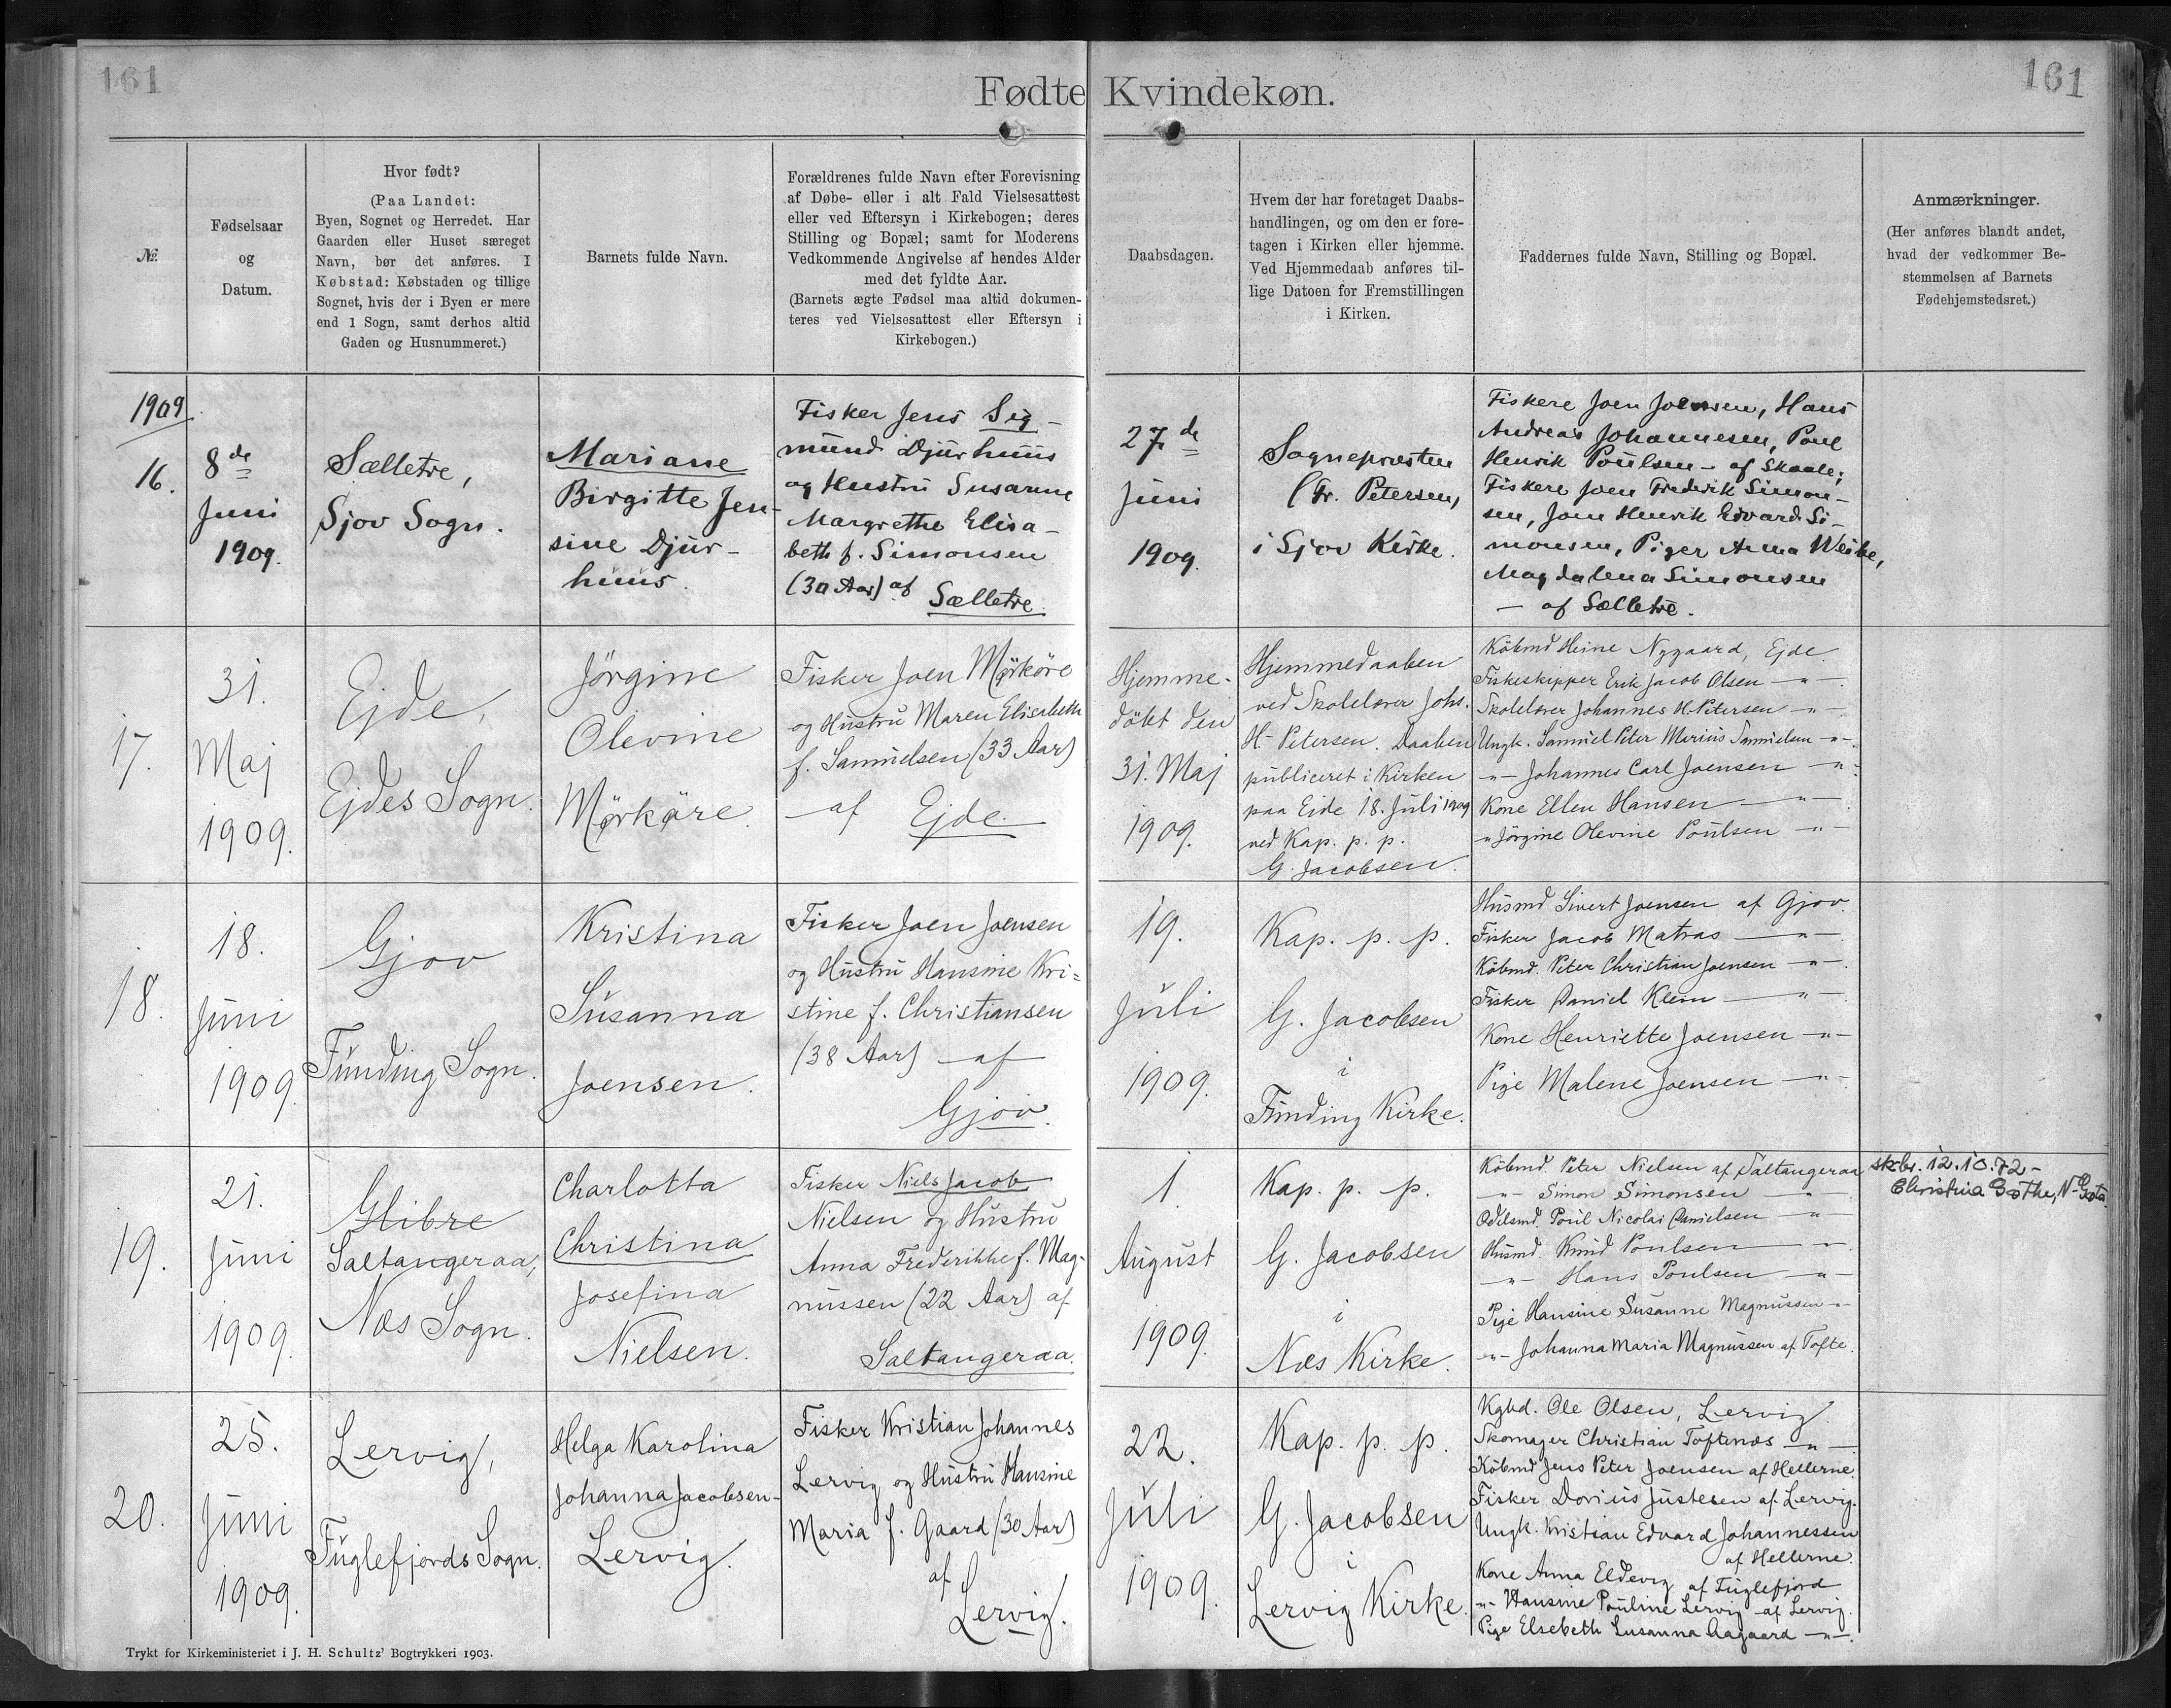 161
Fødte Kvindekøn.
161
№
Fødselsaar
og
Datum.
Hvor født?
(Paa Landet:
Byen, Sognet og Herredet. Har
Gaarden eller Huset særeget
Navn, bør det anføres. I
Købstad: Købstaden og tillige
Sognet, hvis der i Byen er mere
end 1 Sogn, samt derhos altid
Gaden og Husnummeret.)
Barnets fulde Navn.
Forældrenes fulde Navn efter Forevisning
af Døbe- eller i alt Fald Vielsesattest
eller ved Eftersyn i Kirkebogen; deres
Stilling og Bopæl; samt for Moderens
Vedkommende Angivelse af hendes Alder
med det fyldte Aar.
(Barnets ægte Fødsel maa altid dokumen-
teres ved Vielsesattest eller Eftersyn i
Kirkebogen.)
Daabsdagen.
Hvem der har foretaget Daabs-
handlingen, og om den er fore-
tagen i Kirken eller hjemme.
Ved Hjemmedaab anføres til-
lige Datoen for Fremstillingen
i Kirken.
Faddernes fulde Navn, Stilling og Bopæl.
Anmærkninger.
(Her anføres blandt andet,
hvad der vedkommer Be-
stemmelsen af Barnets
Fødehjemstedsret.)
1909
16.
8de
Juni
1909.
Sælletre,
Sjov Sogn.
Mariane
Birgitte Jen-
sine Djur-
huus.
Fisker Jens Sig-
mund Djurhuus
og Hustru Susanne
Margrethe Elisa-
beth f. Simonsen
(30 Aar) af
Sælletre.
27de
Juni
1909.
Sognepræsten
Fr. Petersen,
i Sjov Kirke.
Fiskere Joen Joensen, Hans
Andreas Johannesen, Poul
Henrik Poulsen - af Skaale;
Fiskere Joen Frederik Simon-
sen, Joen Henrik Edvard Si-
monsen, Piger Anna Weihe,
Magdalena Simonsen
— af Sælletre.
17.
31.
Maj
1909.
Ejde,
Ejdes Sogn.
Jörgine
Olevine
Mörköre.
Fisker Joen Mörköre
og Hustru Maren Elisabeth
f. Samuelsen (33 Aar)
af Ejde.
Hjemme-
döbt den
31. Maj
1909.
Hjemmedaaben
ved Skolelærer Johs.
H. Petersen. Daaben
publiceret i Kirken
paa Eide 18. Juli 1909
ved Kap. p. p.
G. Jacobsen.
Köbmd Heine Nygaard, Ejde.
Fiskeskipper Erik Jacob Olsen —"—.
Skolelærer Johannes H. Petersen —"—
Ungk. Samuel Peter Marius Samuelsen —"—.
—"— Johannes Carl Joensen —"—.
Kone Ellen Hansen —"—
" Jörgine Olevine Poulsen —"—
18.
18.
Juni
1909.
Gjov
Funding Sogn.
Kristina
Susanna
Joensen.
Fisker Joen Joensen
og Hustru Hansine Kri=
stine f. Christiansen
(38 Aar) — af
Gjov.
19.
Juli
1909.
Kap. p. p.
G. Jacobsen
i
Funding Kirke.
Husmd Sivert Joensen af Gjov.
Fisker Jacob Matras —"—.
Köbmd. Peter Christian Joensen —"—.
Fisker Daniel Klein —"—.
Kone Henriette Joensen —"—
Pige Malene Joensen —"—
19.
21.
Juni
1909.
Glibre
Saltangeraa,
Næs Sogn.
Charlotta
Christina
Josefina
Nielsen.
Fisker Niels Jacob
Nielsen og Hustru
Anna Frederikke f. Mag-
nussen (22 Aar) af
Saltangeraa.
1.
August
1909.
Kap. p. p.
G. Jacobsen
i
Næs Kirke.
Köbmd. Peter Nielsen af Saltangeraa
—"— Simon Simonsen —"—.
Odelsmd. Poul Nicolai Danielsen —"—
Husmd. Knud Poulsen —"—.
—"— Hans Poulsen —"—
Pige Hansine Susanne Magnussen —"—
—"— Johanna Maria Magnussen af Tofte.
skrbr. 12.10.72 -
Christina Gøthe, N-Gøta.
20.
25.
Juni
1909.
Lervig,
Fuglefjords Sogn.
Helga Karolina
Johanna Jacobsen-
Lervig.
Fisker Kristian Johannes
Lervig og Hustru Hansine
Maria f. Gaard (30 Aar)
af
Lervig.
22.
Juli
1909.
Kap. p. p.
G. Jacobsen
i
Lervig Kirke.
Kgbd. Ole Olsen, Lervig.
Skomager Christian Toftenæs —"—
Köbmd Jens Peter Joensen af Hellerne.
Fisker Dorius Justesen af Lervig.
Ungk. Kristian Edvard Johannessen
af Hellerne.
Kone Anna Eldevig af Fuglefjord
—"— Hansine Pouline Lervig af Lervig.
Pige Elsebeth Susanna Aagaard —"—.
Trykt for Kirkeministeriet i J. H. Schultz' Bogtrykkeri 1903.